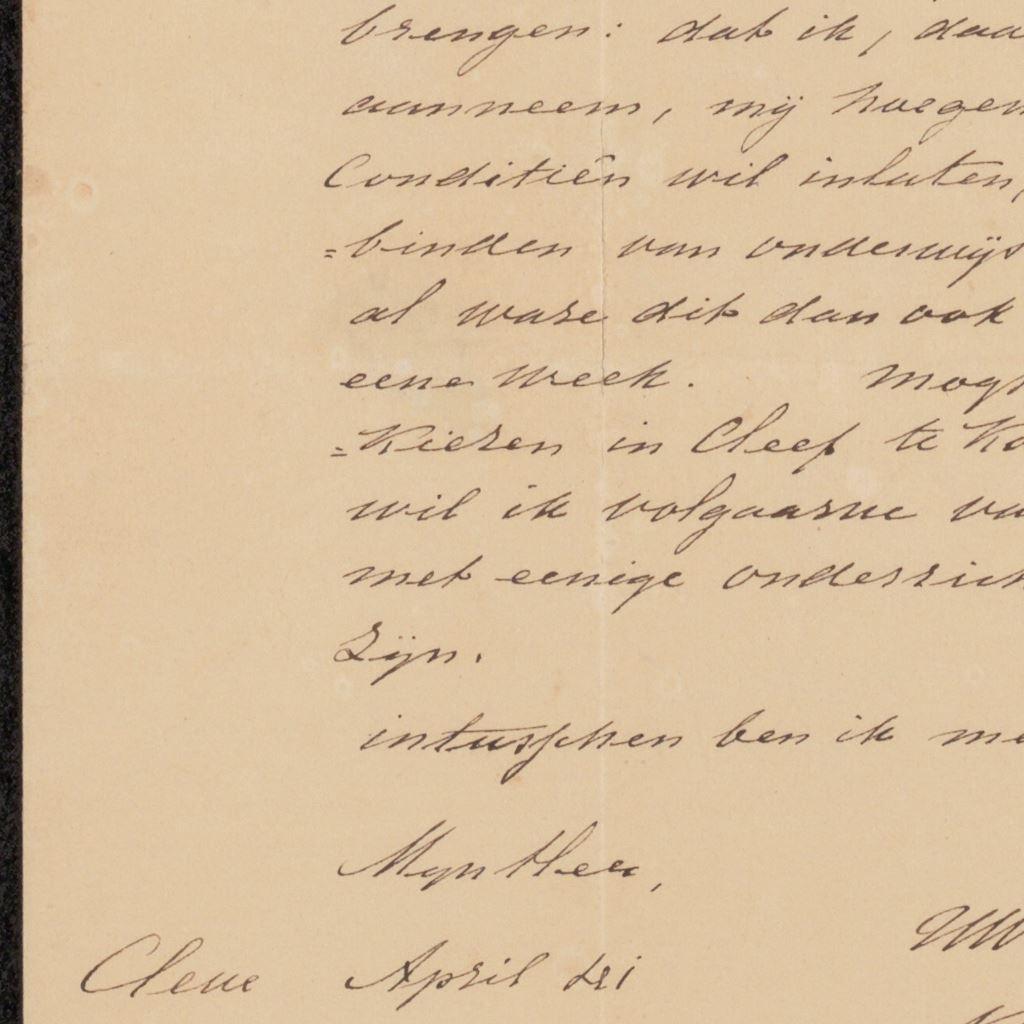 brengen: dat ik, daa
aanneem, mij hoegen
Conditiën wil inlaten,
=binden van onderwijs
al ware dit dan ook
eene week. mogt
=Kiezen in Cleef te Ko
wil ik volgaarne va
met eenige onderrich
zijn.
intusschen ben ik me
Mijn Heer,
UW
Cleve April